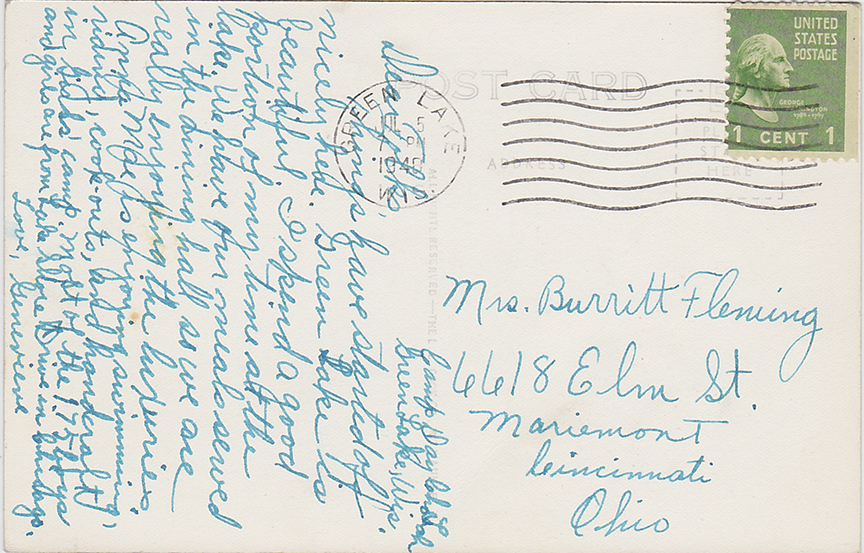 POST CARD
UNITED
STATES
POSTAGE
GEORGE
WASHINGTON
1 CENT 1
GREEN LAKE
JUL 5
PM
WIS
ADDRESS
HERE
Camp Day
Green Lake, Wis.
Dear
Things have started off
nicely here. Green Lake is
beautiful. I spend a good
portion of my time at the
lake. We have our meals served
in the dining hall so we are
really enjoying the luxuries.
Anda Mae is enjoying swimming,
riding, cook-outs, and handcraft
in girls camp. Most of the 175 boys
and girls are from Lake Shore Drive in Chicago.
Love, Genevieve
Mrs. Burritt Fleming
6618 Elm St.
Mariemont
Cincinnati
Ohio